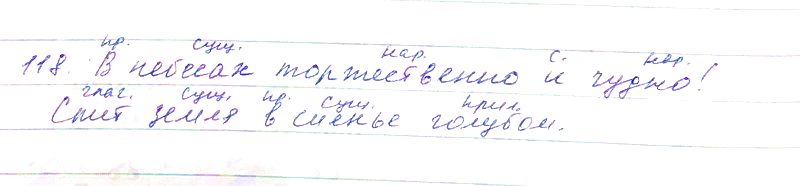 пр. сущ. нар. с. нар.
118. В небесах торжественно и чудно!
глаг. сущ. пр. сущ. прил.
Спит земля в сиянье голубом.